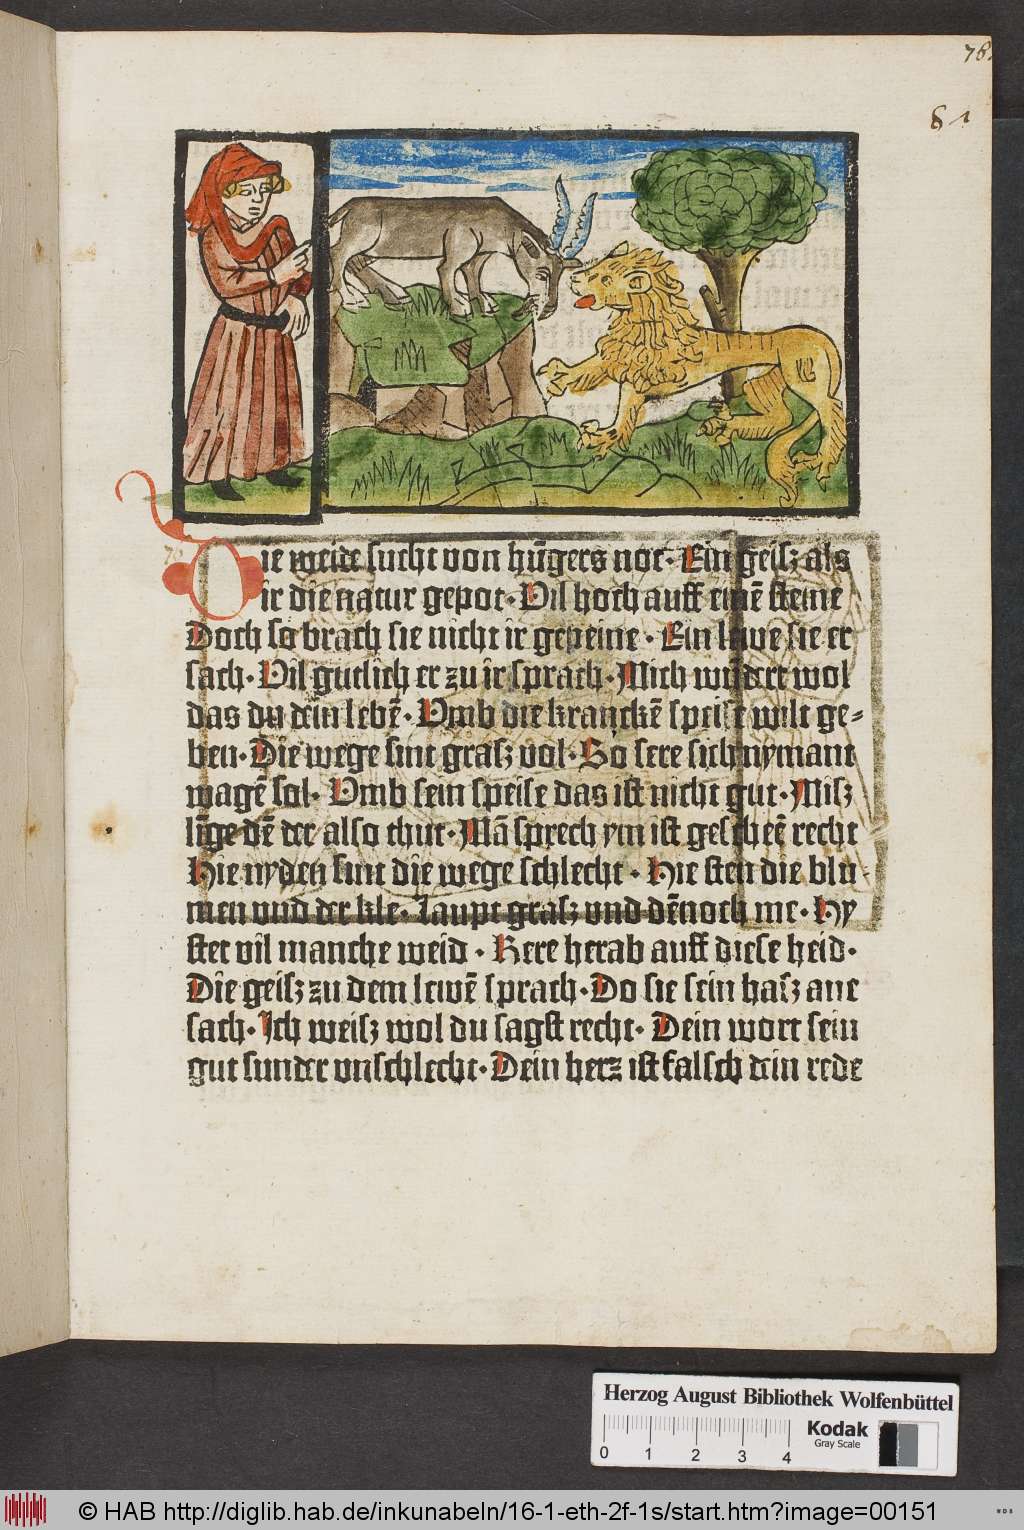 78.
81
Die weide sucht von hūgers not· Ein geisz als
ir die natur gepot· Vil hoch auff einē steine
Doch so brach sie nicht ir gepeine· Ein lewe sie er
sach· Vil gutlich er zu ir sprach· Mich wūdert wol
das du dein lebē· Vmb die kranckē speise wilt ge⸗
ben· Die wege sint grasz vol· So sere sich nymant
wagē sol· Vmb sein speise das ist nicht gut· Misz
līge dē der also thut· Mā sprech ym ist gescheē recht
Hie nyden sint die wege schlecht· Hie sten die blu⸗
men vnd der kle· Laupt grasz vnd dēnoch me· Hy
stet vil manche weid· Kere herab auff diese heid·
Die geisz zu dem lewē sprach· Do sie sein hasz ane
sach· Ich weisz wol du sagst recht· Dein wort sein
gut sunder vnschlecht· Dein herz ist falsch dein rede
Herzog August Bibliothek Wolfenbüttel
0 1 2 3 4
Kodak
Gray Scale
© HAB http://diglib.hab.de/inkunabeln/16-1-eth-2f-1s/start.htm?image=00151